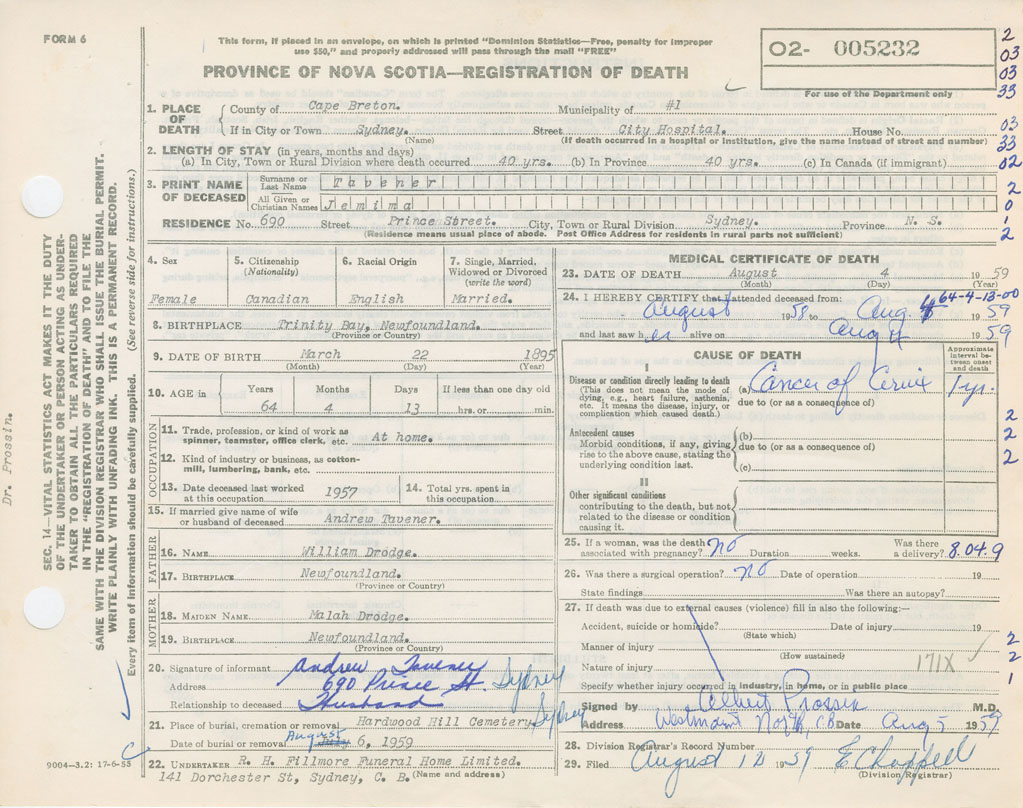 FORM 6
This form, if placed in an envelope, on which is printed "Dominion Statistics—Free, penalty for improper
use $50," and properly addressed will pass through the mail "FREE"
PROVINCE OF NOVA SCOTIA—REGISTRATION OF DEATH
02- 005232
For use of the Department only
2
03
03
33
03
33
02
2
0
1
2
1. PLACE OF DEATH
County of Cape Breton. Municipality of #1
If in City or Town Sydney. Street City Hospital. House No.
(Name) (If death occurred in a hospital or institution, give the name instead of street and number)
2. LENGTH OF STAY (in years, months and days)
(a) In City, Town or Rural Division where death occurred 40 yrs. (b) In Province 40 yrs. (c) In Canada (if immigrant)
3. PRINT NAME OF DECEASED
Surname or Last Name Tavener
All Given or Christian Names Jemima
RESIDENCE No. 690 Street Prince Street. City, Town or Rural Division Sydney. Province N. S.
(Residence means usual place of abode. Post Office Address for residents in rural parts not sufficient)
4. Sex
Female
5. Citizenship
(Nationality)
Canadian
6. Racial Origin
English
7. Single, Married,
Widowed or Divorced
(write the word)
Married.
8. BIRTHPLACE Trinity Bay, Newfoundland.
(Province or Country)
9. DATE OF BIRTH March 22 1895
(Month) (Day) (Year)
10. AGE in
Years Months Days If less than one day old
64 4 13 hrs. or min.
OCCUPATION
11. Trade, profession, or kind of work as
spinner, teamster, office clerk, etc. At home.
12. Kind of industry or business, as cotton-
mill, lumbering, bank, etc.
13. Date deceased last worked
at this occupation 1957
14. Total yrs. spent in
this occupation
15. If married give name of wife
or husband of deceased Andrew Tavener.
FATHER
16. NAME William Drodge.
17. BIRTHPLACE Newfoundland.
(Province or Country)
MOTHER
18. MAIDEN NAME Malah Drodge.
19. BIRTHPLACE Newfoundland.
(Province or Country)
20. Signature of informant Andrew Tavener
Address 690 Prince St. Sydney
Relationship to deceased Husband
21. Place of burial, cremation or removal Hardwood Hill Cemetery, Sydney
Date of burial or removal August July 6, 1959
22. UNDERTAKER R. H. Fillmore Funeral Home Limited.
141 Dorchester St, Sydney, C. B. (Name and address)
9004—3.2: 17-6-53
MEDICAL CERTIFICATE OF DEATH
23. DATE OF DEATH August 4 1959
(Month) (Day) (Year)
64-4-13-00
24. I HEREBY CERTIFY that I attended deceased from:
August 1958 to Aug 4 1959
and last saw her alive on Aug 4 1959
CAUSE OF DEATH
Approximate
interval be-
tween onset
and death
I
Disease or condition directly leading to death
(This does not mean the mode of
dying, e.g., heart failure, asthenia,
etc. It means the disease, injury, or
complication which caused death.)
(a) Cancer of Cervix 1 yr.
due to (or as a consequence of)
Antecedent causes
Morbid conditions, if any, giving
rise to the above cause, stating the
underlying condition last.
(b)
due to (or as a consequence of)
(c)
II
Other significant conditions
contributing to the death, but not
related to the disease or condition
causing it.
2
2
2
25. If a woman, was the death
associated with pregnancy? no Duration weeks. Was there
a delivery? 8.04.9
26. Was there a surgical operation? no Date of operation 19
State findings Was there an autopsy?
27. If death was due to external causes (violence) fill in also the following:—
Accident, suicide or homicide? Date of injury 19
(State which)
Manner of injury
(How sustained)
Nature of injury 171X
Specify whether injury occurred in industry, in home, or in public place
2
2
1
Signed by Albert Prossin M.D.
Address Westmount North, CB Date Aug 5 1959
28. Division Registrar's Record Number
29. Filed August 12 1959 E Chappell
(Division Registrar)
Dr. Prossin.
SEC. 14—VITAL STATISTICS ACT MAKES IT THE DUTY
OF THE UNDERTAKER OR PERSON ACTING AS UNDER-
TAKER TO OBTAIN ALL THE PARTICULARS REQUIRED
IN THE "REGISTRATION OF DEATH" AND TO FILE THE
SAME WITH THE DIVISION REGISTRAR WHO SHALL ISSUE THE BURIAL PERMIT.
WRITE PLAINLY WITH UNFADING INK. THIS IS A PERMANENT RECORD.
Every item of information should be carefully supplied. (See reverse side for instructions.)